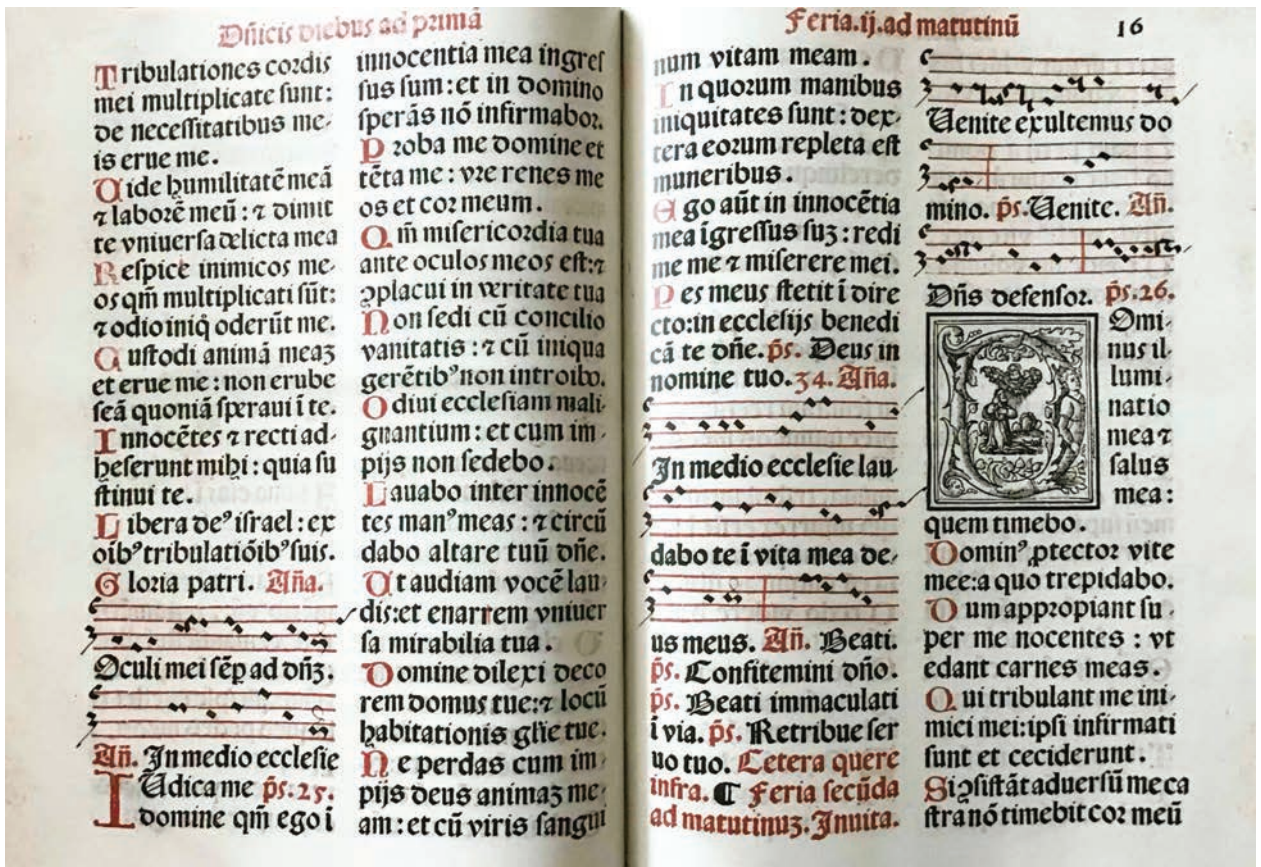 Dñicis diebus ad primã
Tribulationes cordis
mei multiplicate sunt:
de necessitatibus me-
is erue me.
Uide humilitatẽ meã
⁊ laborẽ meũ: ⁊ dimit
te vniuersa delicta mea
Respice inimicos me-
os qm̃ multiplicati sũt:
⁊ odio iniq̃ oderũt me.
Custodi animã meaʒ
et erue me: non erube
scã quoniã speraui ĩ te.
Innocẽtes ⁊ recti ad-
heserunt mihi: quia su
stinui te.
Libera deꝰ israel: ex
oĩbꝰ tribulatiõibꝰ suis.
Gloria patri. Aña.
Oculi mei sẽp ad dñʒ.
Añ. In medio ecclesie
IUdica me p̃s. 25.
domine qm̃ ego ĩ
innocentia mea ingres
sus sum: et in domino
sperãs nõ infirmabor.
Proba me domine et
tẽta me: vre renes me
os et cor meum.
Qm̃ misericordia tua
ante oculos meos est: ⁊
ꝯplacui in veritate tua
Non sedi cũ concilio
vanitatis: ⁊ cũ iniqua
gerẽtibꝰ non introibo.
Odiui ecclesiam mali-
gnantium: et cum im-
pijs non sedebo.
Lauabo inter innocẽ
tes manꝰ meas: ⁊ circũ
dabo altare tuũ dñe.
Ut audiam vocẽ lau-
dis: et enarrem vniuer
sa mirabilia tua.
Domine dilexi deco
rem domus tue: ⁊ locũ
habitationis glĩe tue.
Ne perdas cum im-
pijs deus animaʒ me-
am: et cũ viris sangui
Feria. ij. ad matutinũ 16
num vitam meam.
In quorum manibus
iniquitates sunt: dex-
tera eorum repleta est
muneribus.
Ego aũt in innocẽtia
mea ĩgressus suʒ: redi
me me ⁊ miserere mei.
Pes meus stetit ĩ dire
cto: in ecclesijs benedi
cã te dñe. p̃s. Deus in
nomine tuo. 34. Aña.
In medio ecclesie lau-
dabo te ĩ vita mea de-
us meus. Añ. Beati.
p̃s. Confitemini dño.
p̃s. Beati immaculati
ĩ via. p̃s. Retribue ser
uo tuo. Cetera quere
infra. ¶ Feria secũda
ad matutinuʒ. Inuita.
Uenite exultemus do
mino. p̃s. Uenite. Añ.
Dñs defensor. p̃s. 26.
DOmi-
nus il-
lumi-
natio
mea ⁊
salus
mea:
quem timebo.
Dominꝰ ꝓtector vite
mee: a quo trepidabo.
Dum appropiant su-
per me nocentes: vt
edant carnes meas.
Qui tribulant me ini-
mici mei: ipsi infirmati
sunt et ceciderunt.
Si ꝯsistãt aduersũ me ca
stra nõ timebit cor meũ